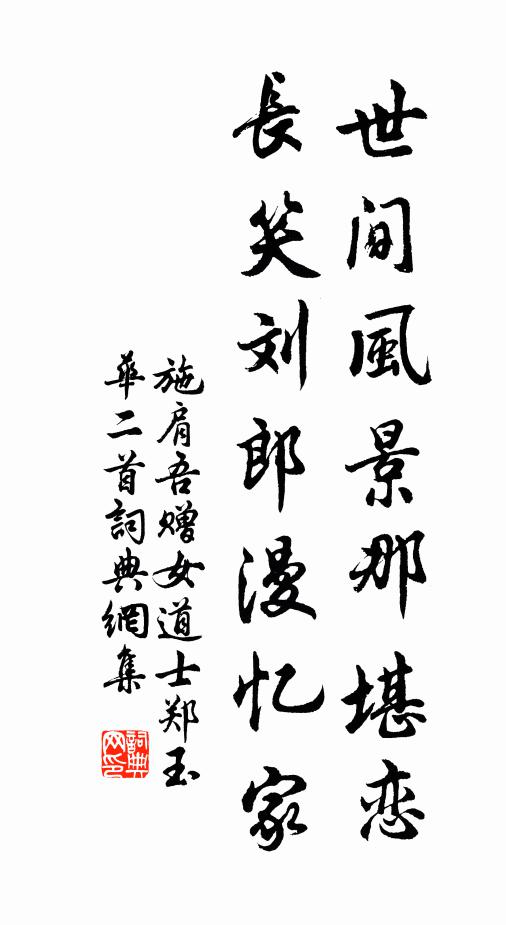 世间風景那堪恋
長笑刘郎漫忆家
施肩吾赠女道士郑玉
華二首詞典網集
詞典网印